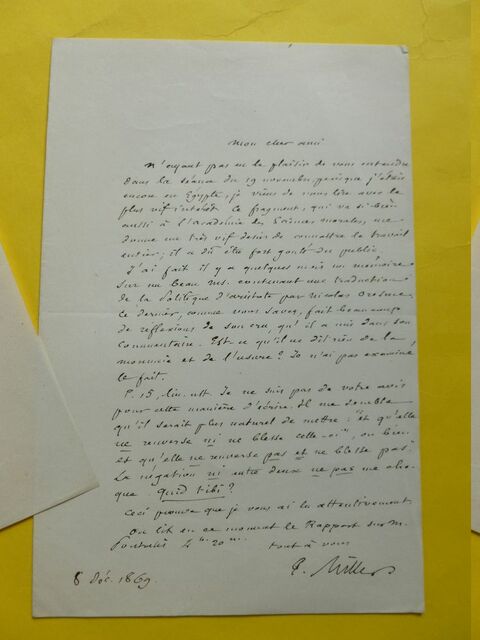 Mon cher ami
N'ayant pas eu le plaisir de vous entendre
dans la séance du 19 novembre puisque j'étais
encore en Egypte, je viens de vous lire avec le
plus vif intérêt. Ce fragment, qui va si bien
aussi à l'académie des Sciences morales, me
donne un très vif désir de connaître le travail
entier; il a dû être fort goûté du public.
J'ai fait il y a quelques mois un mémoire
sur un beau ms. contenant une traduction
de la Politique d'aristote par Nicolas Oresme.
Ce dernier, comme vous savez, fait beaucoup
de reflexions de son cru, qu'il a mis dans son
commentaire. Est ce qu'il ne dit rien de la
monnaie et de l'usure? Je n'ai pas examiné
le fait.
P. 15, lin. ult. Je ne suis pas de votre avis
pour cette manière d'écrire. Il me semble
qu'il serait plus naturel de mettre: "et qu'elle
ne renverse ni ne blesse celle-ci", ou bien
et qu'elle ne renverse pas et ne blesse pas".
La négation ni entre deux ne pas me cho-
que. Quid tibi?
Ceci prouve que je vous ai lu attentivement
On lit en ce moment le Rapport sur M.
tout à vous
E. Miller
8 Déc. 1869.